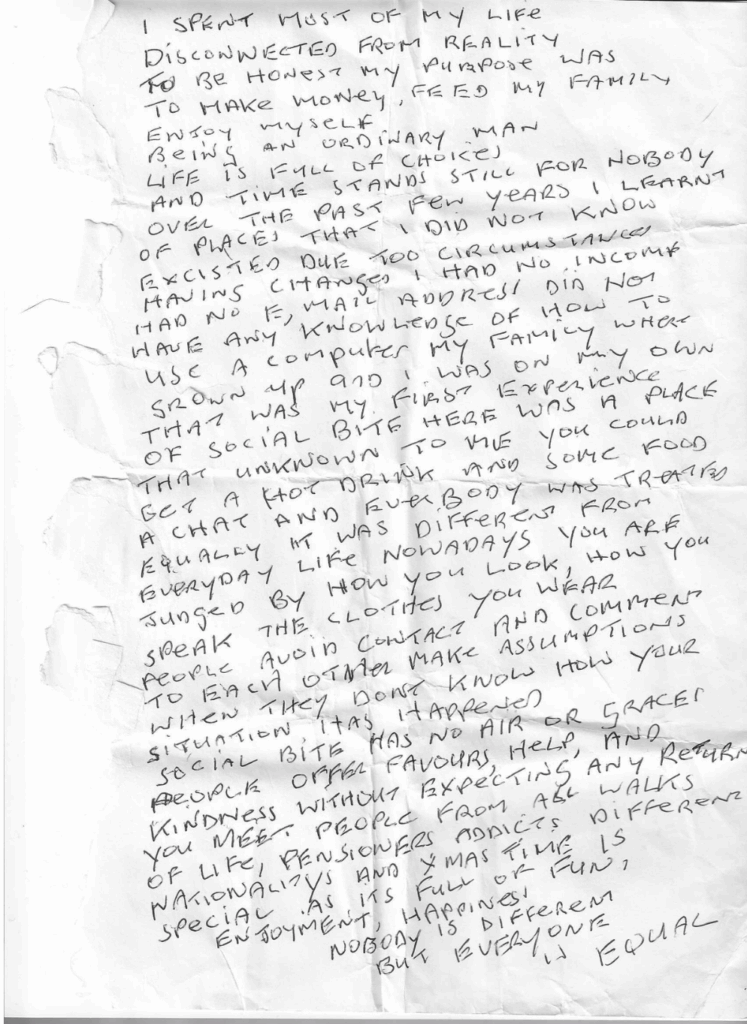 I SPENT MOST OF MY LIFE
DISCONNECTED FROM REALITY
TO BE HONEST MY PURPOSE WAS
TO MAKE MONEY, FEED MY FAMILY
ENJOY MYSELF
BEING AN ORDINARY MAN
LIFE IS FULL OF CHOICES
AND TIME STANDS STILL FOR NOBODY
OVER THE PAST FEW YEARS I LEARNT
OF PLACES THAT I DID NOT KNOW
EXCISTED DUE TOO CIRCUMSTANCES
HAVING CHANGED I HAD NO INCOME
HAD NO E,MAIL ADDRESS DID NOT
HAVE ANY KNOWLEDGE OF HOW TO
USE A COMPUTER MY FAMILY WHERE
GROWN UP AND I WAS ON MY OWN
THAT WAS MY FIRST EXPERIENCE
OF SOCIAL BITE HERE WAS A PLACE
THAT UNKNOWN TO ME YOU COULD
GET A HOT DRINK AND SOME FOOD
A CHAT AND EVERBODY WAS TREATED
EQUALLY IT WAS DIFFERENT FROM
EVERYDAY LIFE NOWADAYS YOU ARE
JUDGED BY HOW YOU LOOK, HOW YOU
SPEAK THE CLOTHES YOU WEAR
PEOPLE AVOID CONTACT AND COMMENT
TO EACH OTHER MAKE ASSUMPTIONS
WHEN THEY DONT KNOW HOW YOUR
SITUATION HAS HAPPENED
SOCIAL BITE HAS NO AIR OR GRACES
PEOPLE OFFER FAVOURS, HELP, AND
KINDNESS WITHOUT EXPECTING ANY RETURN
YOU MEET PEOPLE FROM ALL WALKS
OF LIFE, PENSIONERS ADDICTS DIFFERENT
NATIONALITYS AND XMAS TIME IS
SPECIAL AS ITS FULL OF FUN,
ENJOYMENT, HAPPINESS
NOBODY IS DIFFERENT
BUT EVERYONE
IS EQUAL